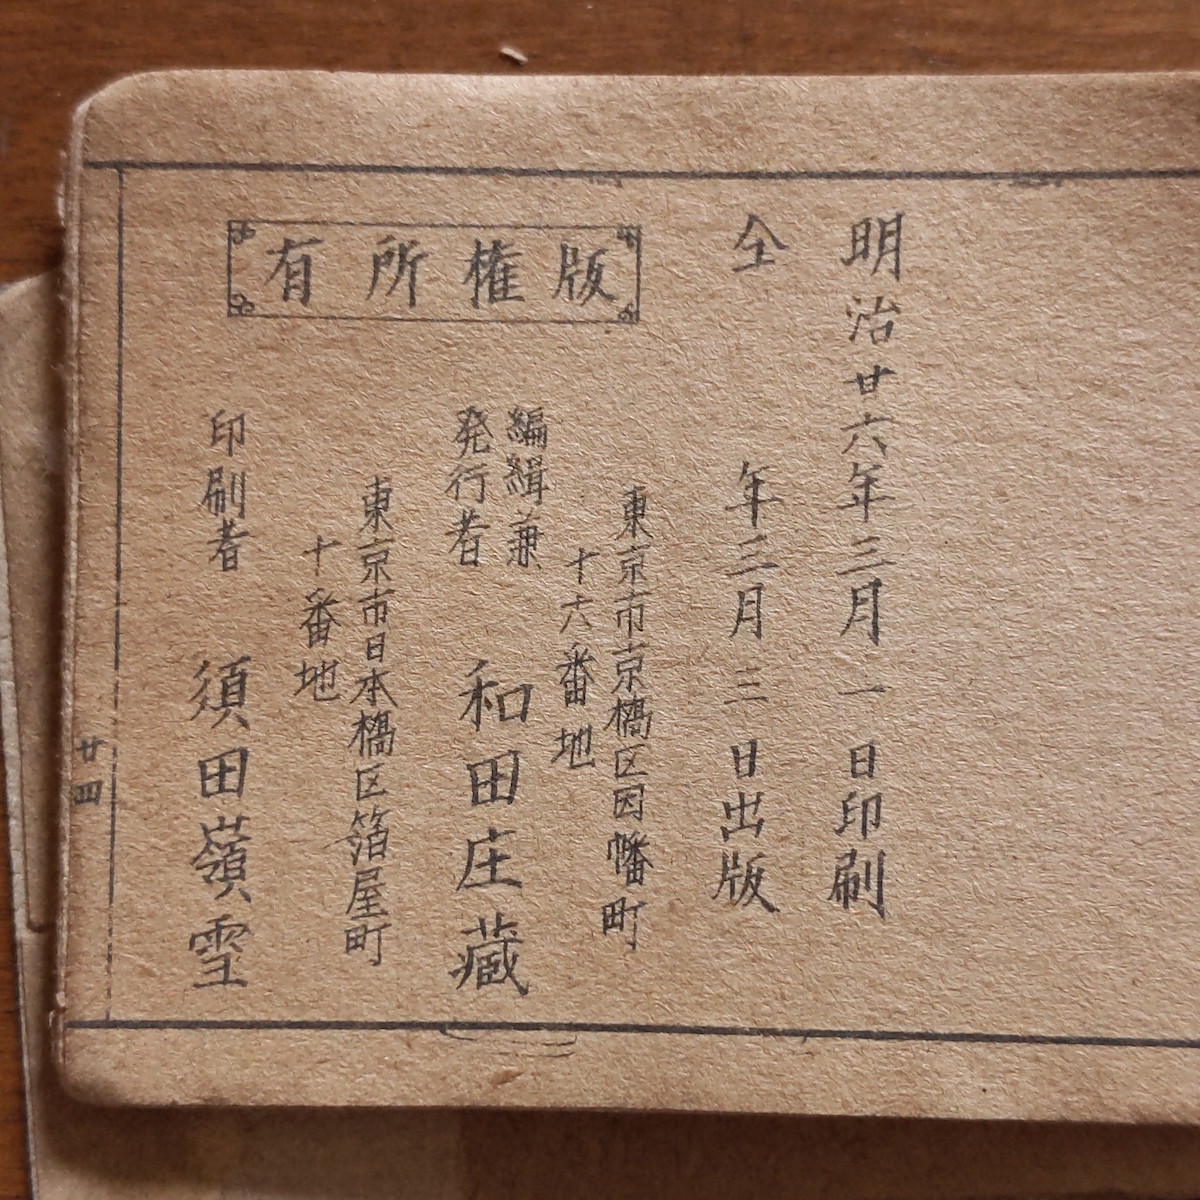 明治廿六年三月一日印刷
仝年三月三日出版
版権所有
東京市京橋区因幡町
十六番地
編緝兼
発行者
和田庄蔵
東京市日本橋区箔屋町
十番地
印刷者 須田嶺雪
廿四